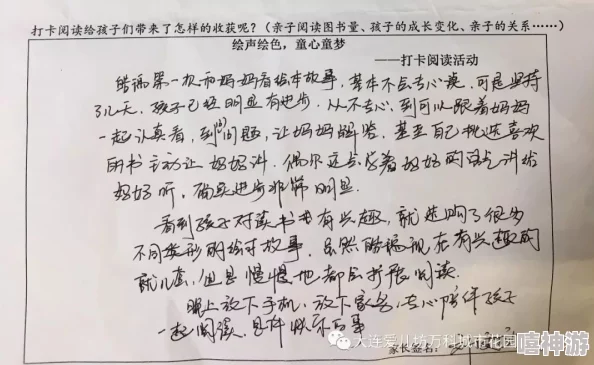 打卡阅读给孩子们带来了怎样的收获呢？（亲子阅读图书量、孩子的成长变化、亲子的关系……）
绘声绘色，童心童梦
——打卡阅读活动
第一次和妈妈看绘本故事，基本不会专心读，可是坚持
了几天，孩子已经明显有进步，从不专心，到可以跟着妈妈
一起认真看，到问问题，让妈妈解答，甚至自己挑选喜欢
的书主动让妈妈讲，偶尔还会学着妈妈的讲给
妈妈听，确实进步非常明显。
看到孩子对读书有兴趣，就选购了很多
不同类型的绘本故事，虽然现在有兴趣的
就几套，但是慢慢地都会扩展阅读。
晚上放下手机，放下家务，专心陪伴孩子
一起阅读，是件快乐的事
大连爱儿坊万科城市花园
家长签名：
嘻神游